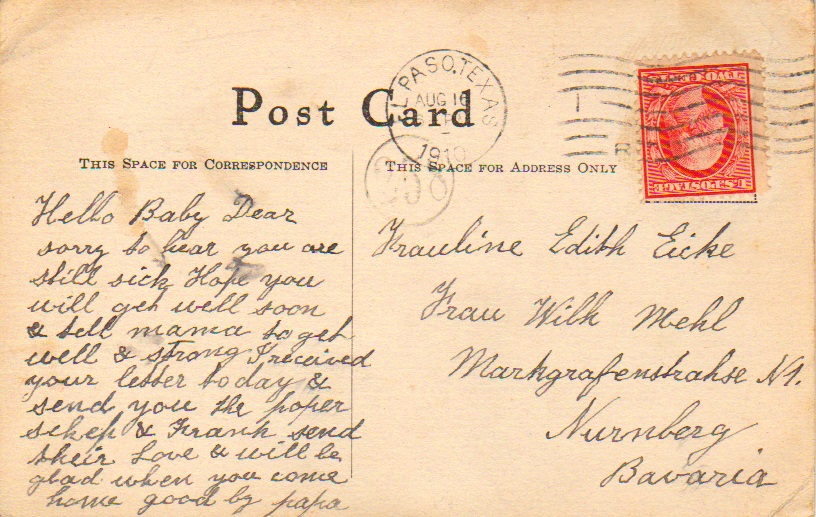 Post Card
PASO, TEXAS
AUG 16
1910
THIS SPACE FOR CORRESPONDENCE
THIS SPACE FOR ADDRESS ONLY
Hello Baby Dear
sorry to hear you are
still sick Hope you
will get well soon
& tell mama to get
well & strong I received
your letter today &
send you the paper
& Frank send
their Love & will be
glad when you come
home good by papa
Frauline Edith Eicke
Frau Wilh Mehl
Markgrafenstrahse N1.
Nurnberg
Bavaria